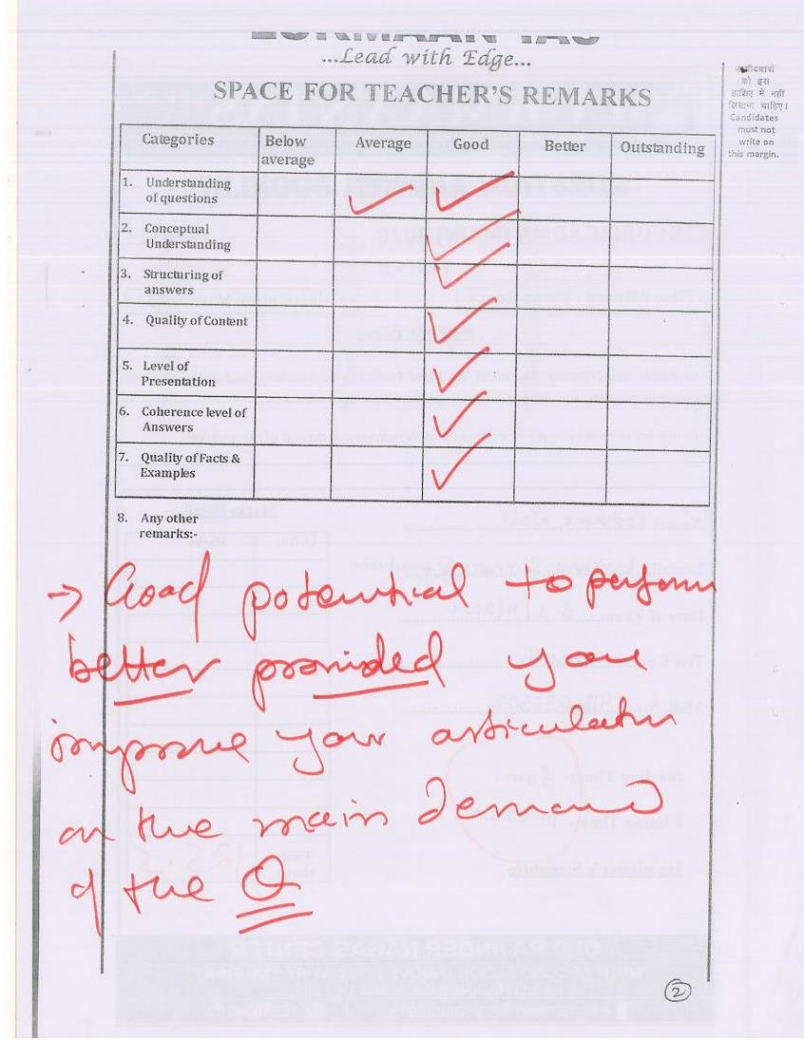 ...Lead with Edge...
SPACE FOR TEACHER'S REMARKS
को इस
हाशिए में नहीं
लिखना चाहिए।
Candidates
must not
write on
this margin.
Categories Below average Average Good Better Outstanding
1. Understanding
of questions
2. Conceptual
Understanding
3. Structuring of
answers
4. Quality of Content
5. Level of
Presentation
6. Coherence level of
Answers
7. Quality of Facts &
Examples
8. Any other
remarks:-
→ Good potential to perform
better provided you
improve your articulation
on the main demand
of the Q
2